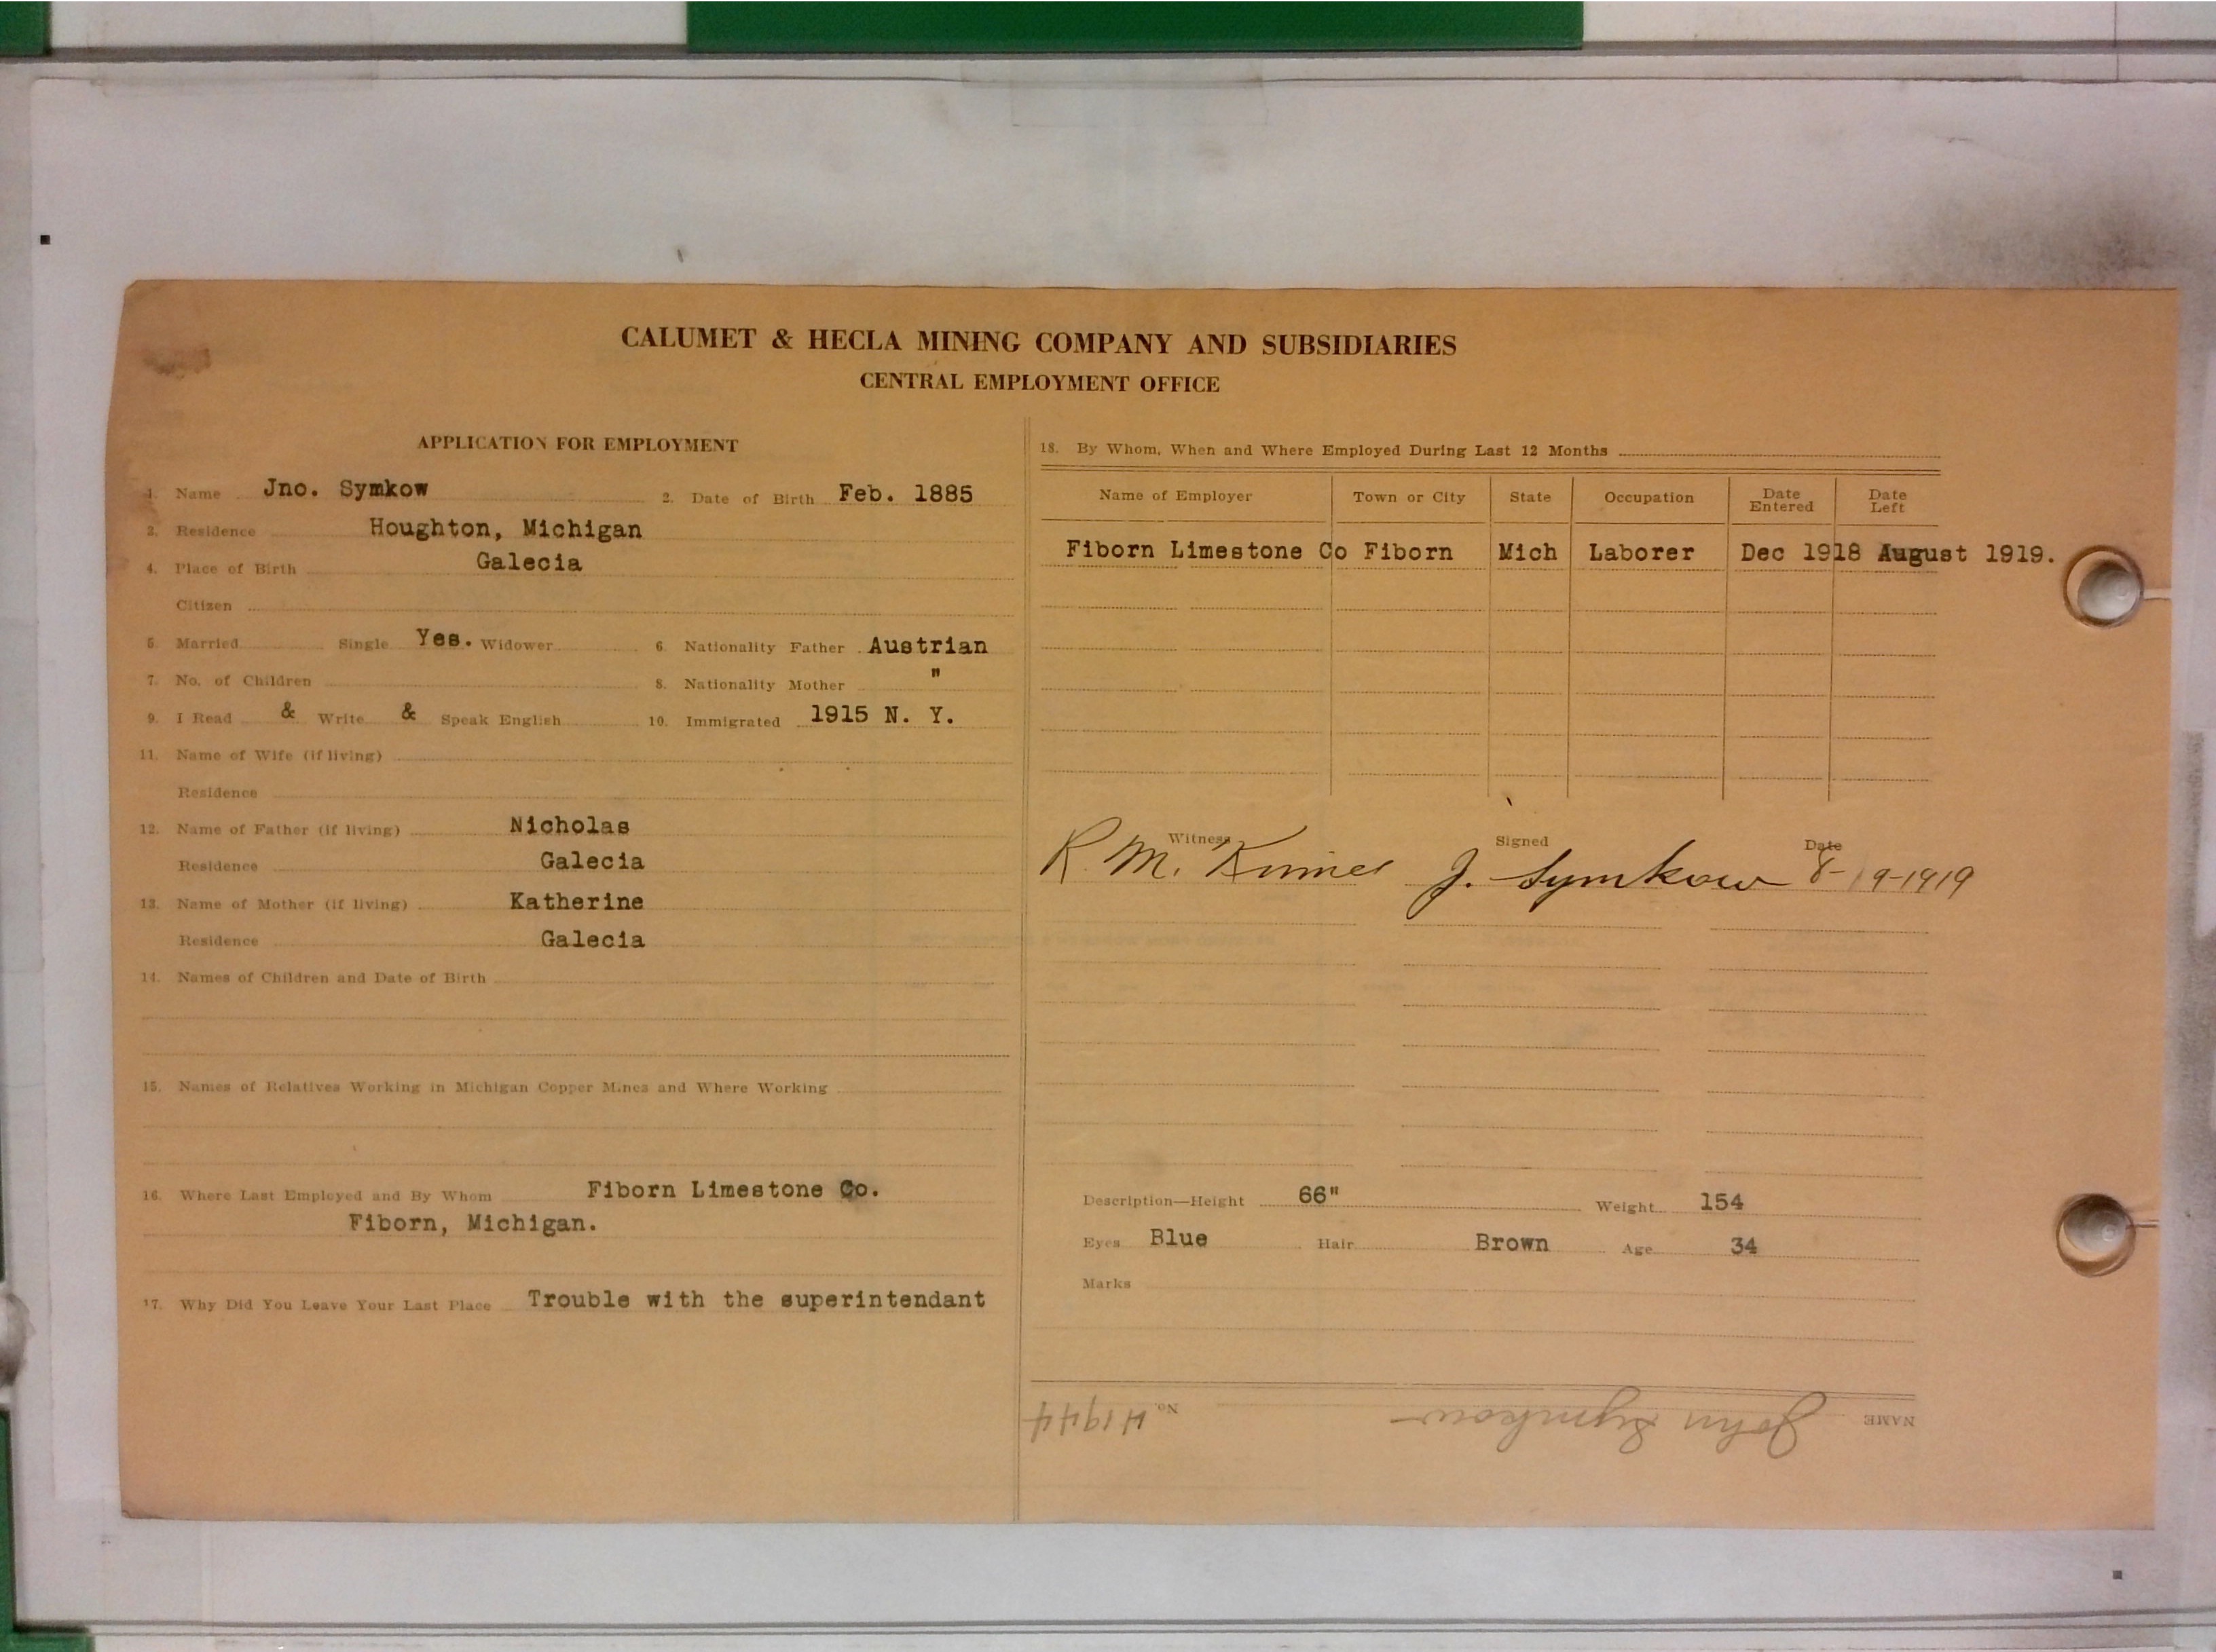 CALUMET & HECLA MINING COMPANY AND SUBSIDIARIES
CENTRAL EMPLOYMENT OFFICE
APPLICATION FOR EMPLOYMENT
1. Name Jno. Symkow 2. Date of Birth Feb. 1885
3. Residence Houghton, Michigan
4. Place of Birth Galecia
Citizen
5. Married Single Yes. Widower 6. Nationality Father Austrian
7. No. of Children 8. Nationality Mother "
9. I Read & Write & Speak English 10. Immigrated 1915 N. Y.
11. Name of Wife (if living)
Residence
12. Name of Father (if living) Nicholas
Residence Galecia
13. Name of Mother (if living) Katherine
Residence Galecia
14. Names of Children and Date of Birth
15. Names of Relatives Working in Michigan Copper Mines and Where Working
16. Where Last Employed and By Whom Fiborn Limestone Co.
Fiborn, Michigan.
17. Why Did You Leave Your Last Place Trouble with the superintendant
18. By Whom, When and Where Employed During Last 12 Months
Name of Employer Town or City State Occupation Date Entered Date Left
Fiborn Limestone Co Fiborn Mich Laborer Dec 1918 August 1919.
Witness Signed Date
R. M. J. Symkow 8-19-1919
Description—Height 66" Weight 154
Eyes Blue Hair Brown Age 34
Marks
NAME John Symkow No. 41944